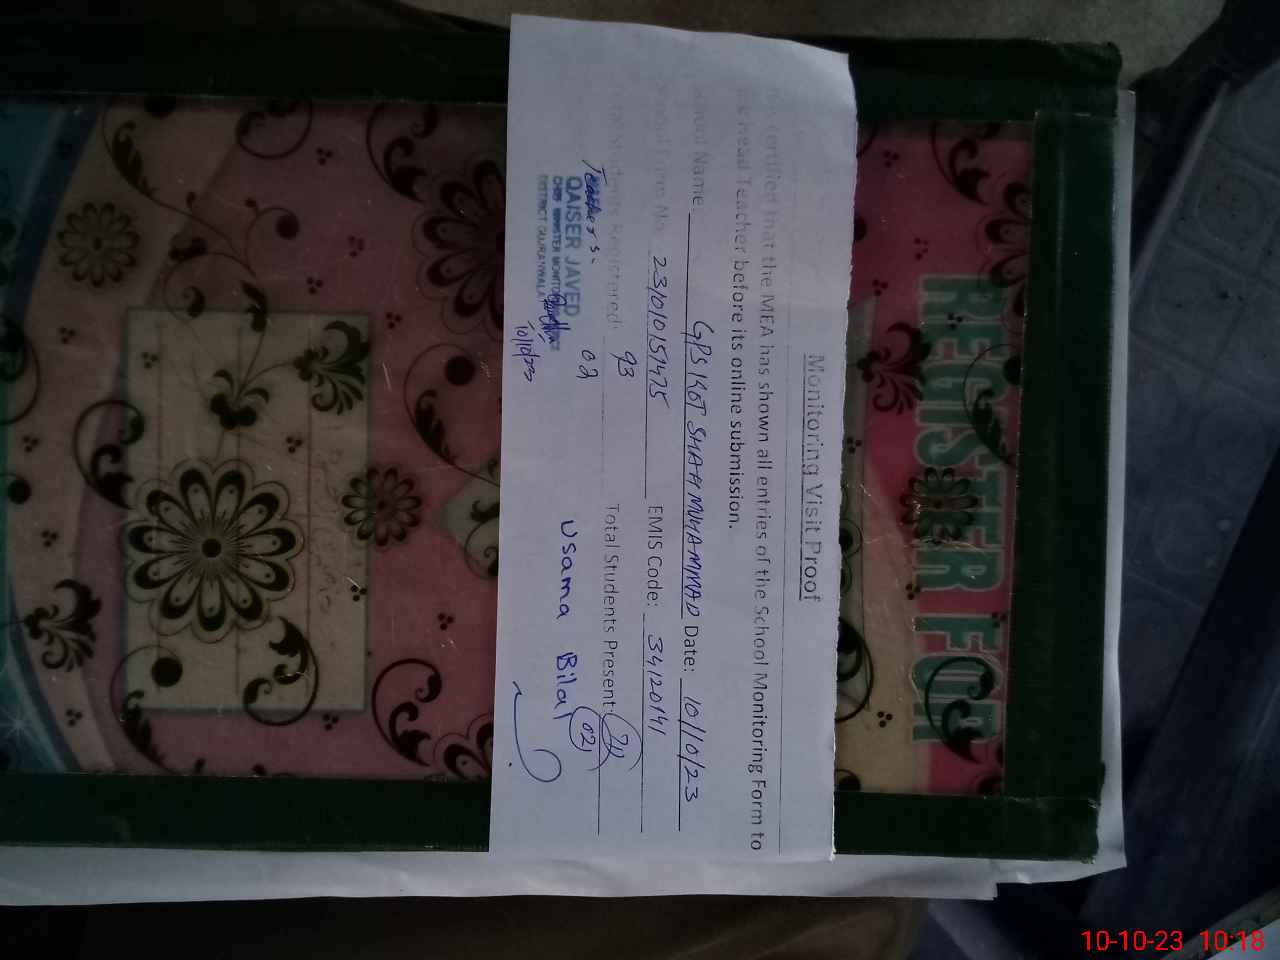 REGISTER FOR
Monitoring Visit Proof
certified that the MEA has shown all entries of the School Monitoring Form to
Head Teacher before its online submission.
School Name: GPS KOT SHAH MUHAMMAD Date: 10/10/23
School Form No: 230101051475 EMIS Code: 34120141
Total Students Registered: 93 Total Students Present:
Teachers: 02 02
QAISER JAVED Usama Bilal
CHIEF MINISTER MONITORING
DISTRICT GUJRANWALA
10-10-23 10:18